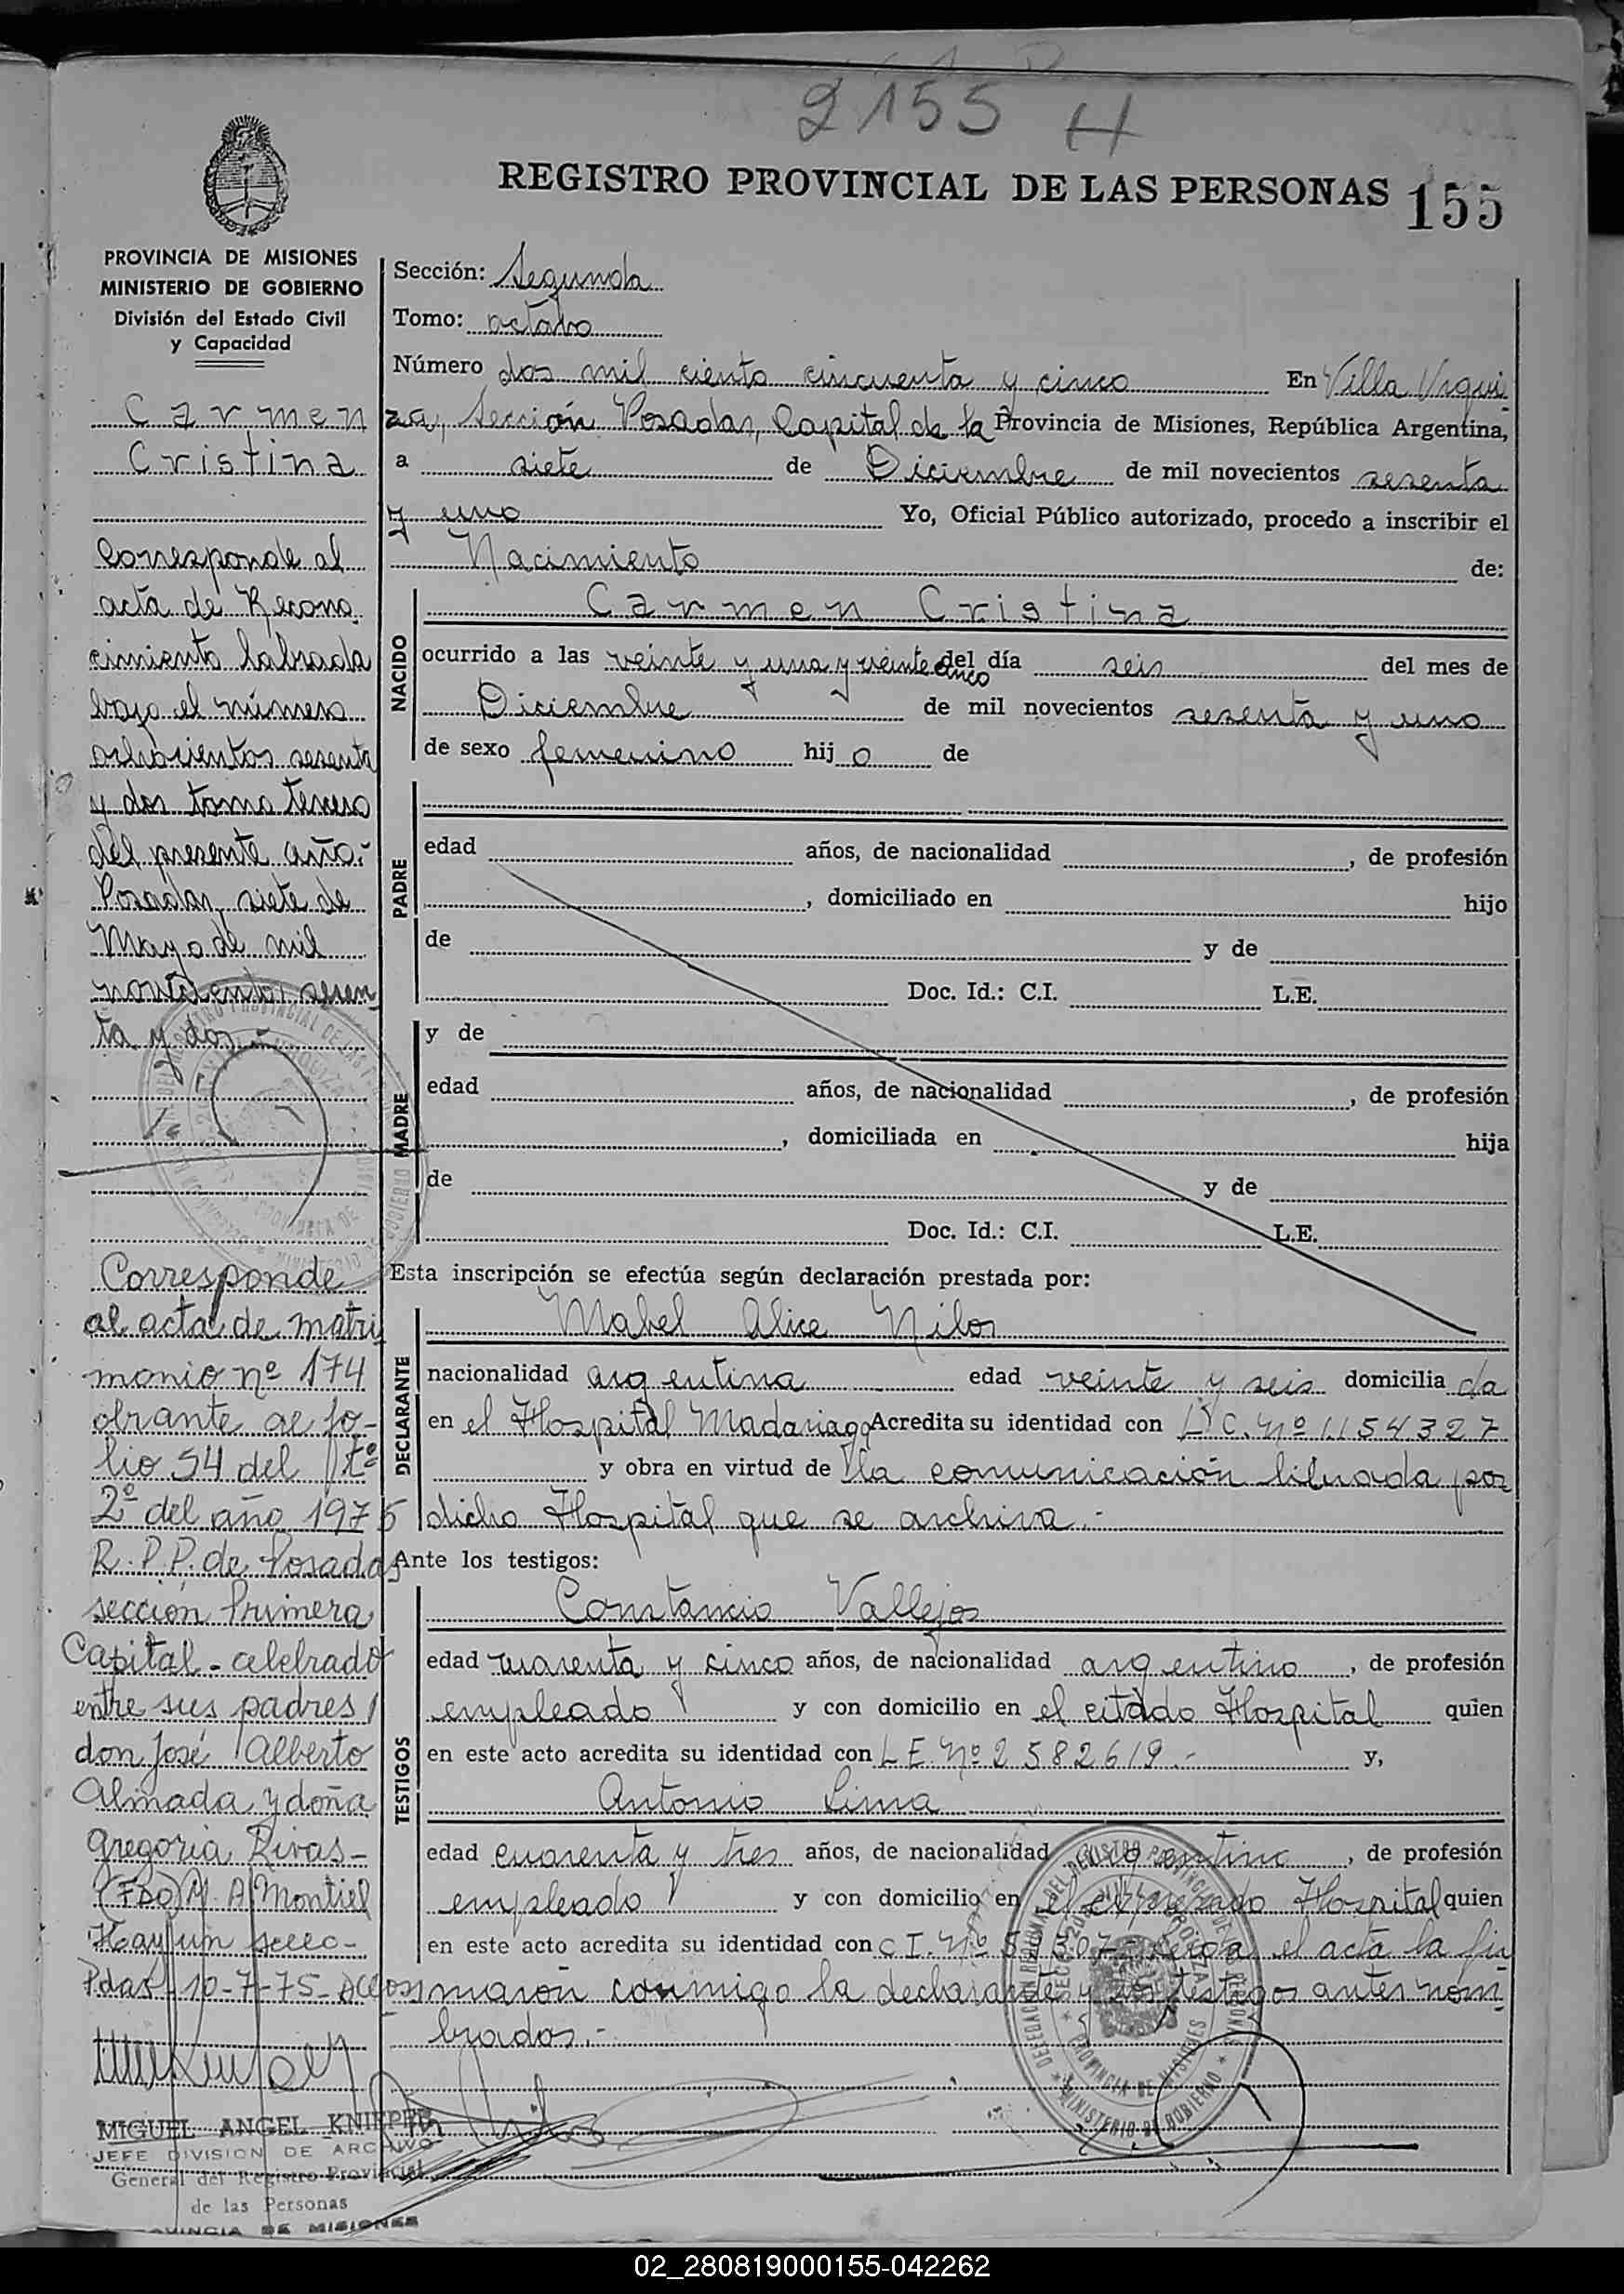 2155 H
REGISTRO PROVINCIAL DE LAS PERSONAS 155
PROVINCIA DE MISIONES
MINISTERIO DE GOBIERNO
División del Estado Civil
y Capacidad
Carmen
Cristina
Corresponde al
acta de Recono
cimiento labrada
bajo el número
ochocientos sesenta
y dos tomo tercero
del presente año.-
Posadas, siete de
Mayo de mil
novecientos sesen
ta y dos.-
Corresponde
al acta de matri
monio nº 174
obrante al fo-
lio 54 del tº
2º del año 1975
R.P.P. de Posadas
sección Primera
Capital - celebrado
entre sus padres
don José Alberto
Almada y doña
Gregoria Rivas -
(FDO) M. A. Montiel
Hay un sello -
Pdas 10-7-75-
MIGUEL ANGEL KNIEPER
JEFE DIVISION DE ARCHIVO
General del Registro Provincial
de las Personas
PROVINCIA DE MISIONES
Sección: Segunda
Tomo: octavo
Número dos mil ciento cincuenta y cinco En Villa Urqui
za, Sección Posadas, Capital de la Provincia de Misiones, República Argentina,
a siete de Diciembre de mil novecientos sesenta
y uno Yo, Oficial Público autorizado, procedo a inscribir el
Nacimiento de:
NACIDO
Carmen Cristina
ocurrido a las veinte y una y veinte cinco del día seis del mes de
Diciembre de mil novecientos sesenta y uno
de sexo femenino hij o de
PADRE
edad años, de nacionalidad , de profesión
, domiciliado en hijo
de y de
Doc. Id.: C.I. L.E.
MADRE
y de
edad años, de nacionalidad , de profesión
, domiciliada en hija
de y de
Doc. Id.: C.I. L.E.
Esta inscripción se efectúa según declaración prestada por:
DECLARANTE
Mabel Alice Nilos
nacionalidad argentina edad veinte y seis domicilia da
en el Hospital Madariaga Acredita su identidad con L.C. Nº 1154327
y obra en virtud de la comunicación librada por
dicho Hospital que se archiva.-
Ante los testigos:
TESTIGOS
Constancio Vallejos
edad cuarenta y cinco años, de nacionalidad argentino , de profesión
empleado y con domicilio en el citado Hospital quien
en este acto acredita su identidad con L.E. Nº 2582619.- y,
Antonio Lima
edad cuarenta y tres años, de nacionalidad argentino , de profesión
empleado y con domicilio en el expresado Hospital quien
en este acto acredita su identidad con C.I. Nº el acta la fir
maron conmigo la declarante y los testigos antes nom
brados.-
02_280819000155-042262